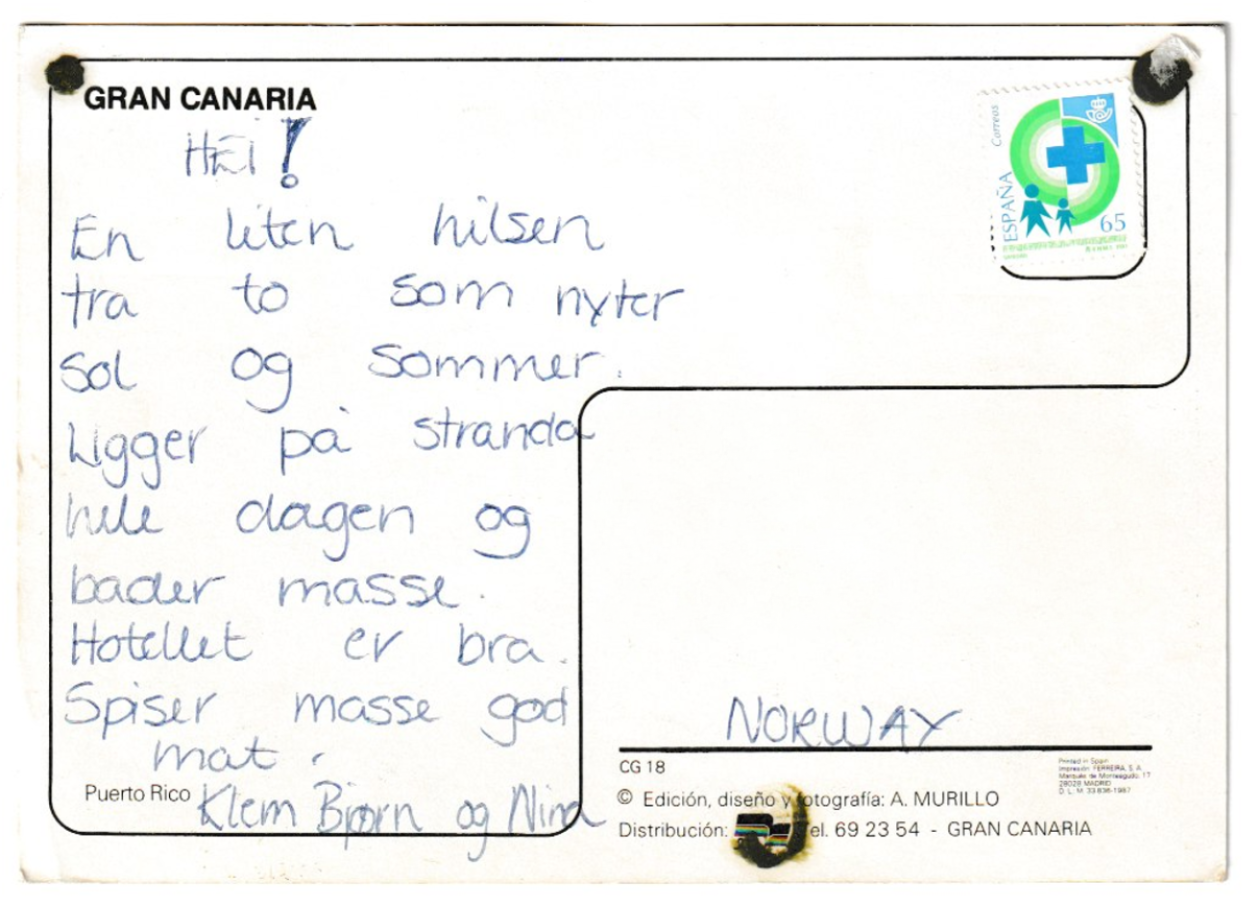 GRAN CANARIA
HEi!
En liten hilsen
fra to som nyter
sol og sommer.
Ligger på stranda
hele dagen og
bader masse.
Hotellet er bra.
Spiser masse god
mat.
Klem Bjørn og Nina
Puerto Rico
Correos
ESPAÑA
65
NORWAY
CG 18
Printed in Spain
Impresión FERREIRA, S. A.
Marqués de Monteagudo, 17
28028 MADRID
D. L.: M. 33.836-1987
© Edición, diseño y fotografía: A. MURILLO
Distribución: Tel. 69 23 54 - GRAN CANARIA